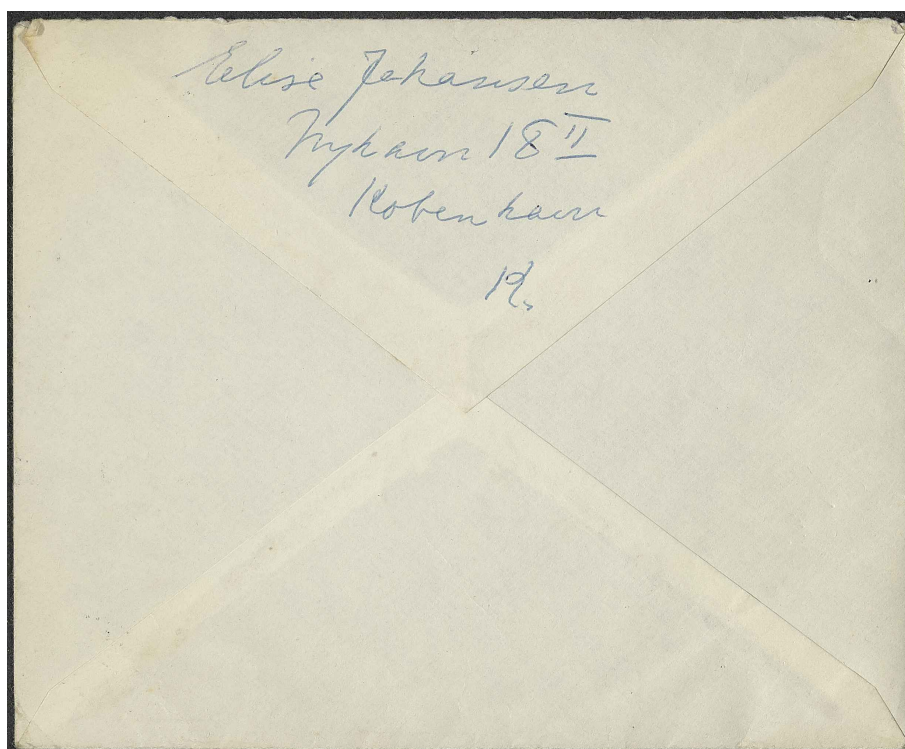 Elise Johansen
Nyhavn 18 II
Kobenhavn
K.